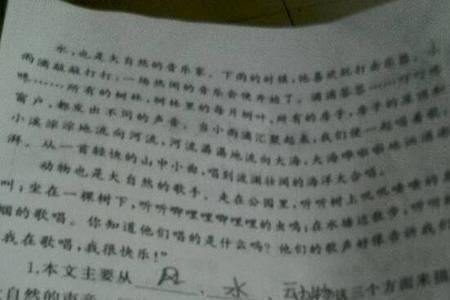 水，也是大自然的音乐家。下雨的时候，他喜欢玩打击乐器。小
雨滴敲敲打打，一场热闹的音乐会便开始了。滴滴答答……叮叮咚
咚……所有的树林，树林里的每片树叶，所有的房子，房子的屋顶和
窗户，都发出不同的声音。当小雨滴汇聚起来，他们便一起唱着歌：
小溪淙淙地流向河流，河流潺潺地流向大海，大海哗啦啦地汹涌澎
湃。从一首轻快的山中小曲，唱到波澜壮阔的海洋大合唱。
动物也是大自然的歌手。走在公园里，听听树上叽叽喳喳的鸟
叫；坐在一棵树下，听听唧哩哩唧哩哩的虫鸣；在水塘边散步，听听
的歌唱。你知道他们唱的是什么吗？他们的歌声好像告诉我们
我在歌唱，我很快乐！”
1.本文主要从 风 、 水 、 动物 这三个方面来描
大自然的声音